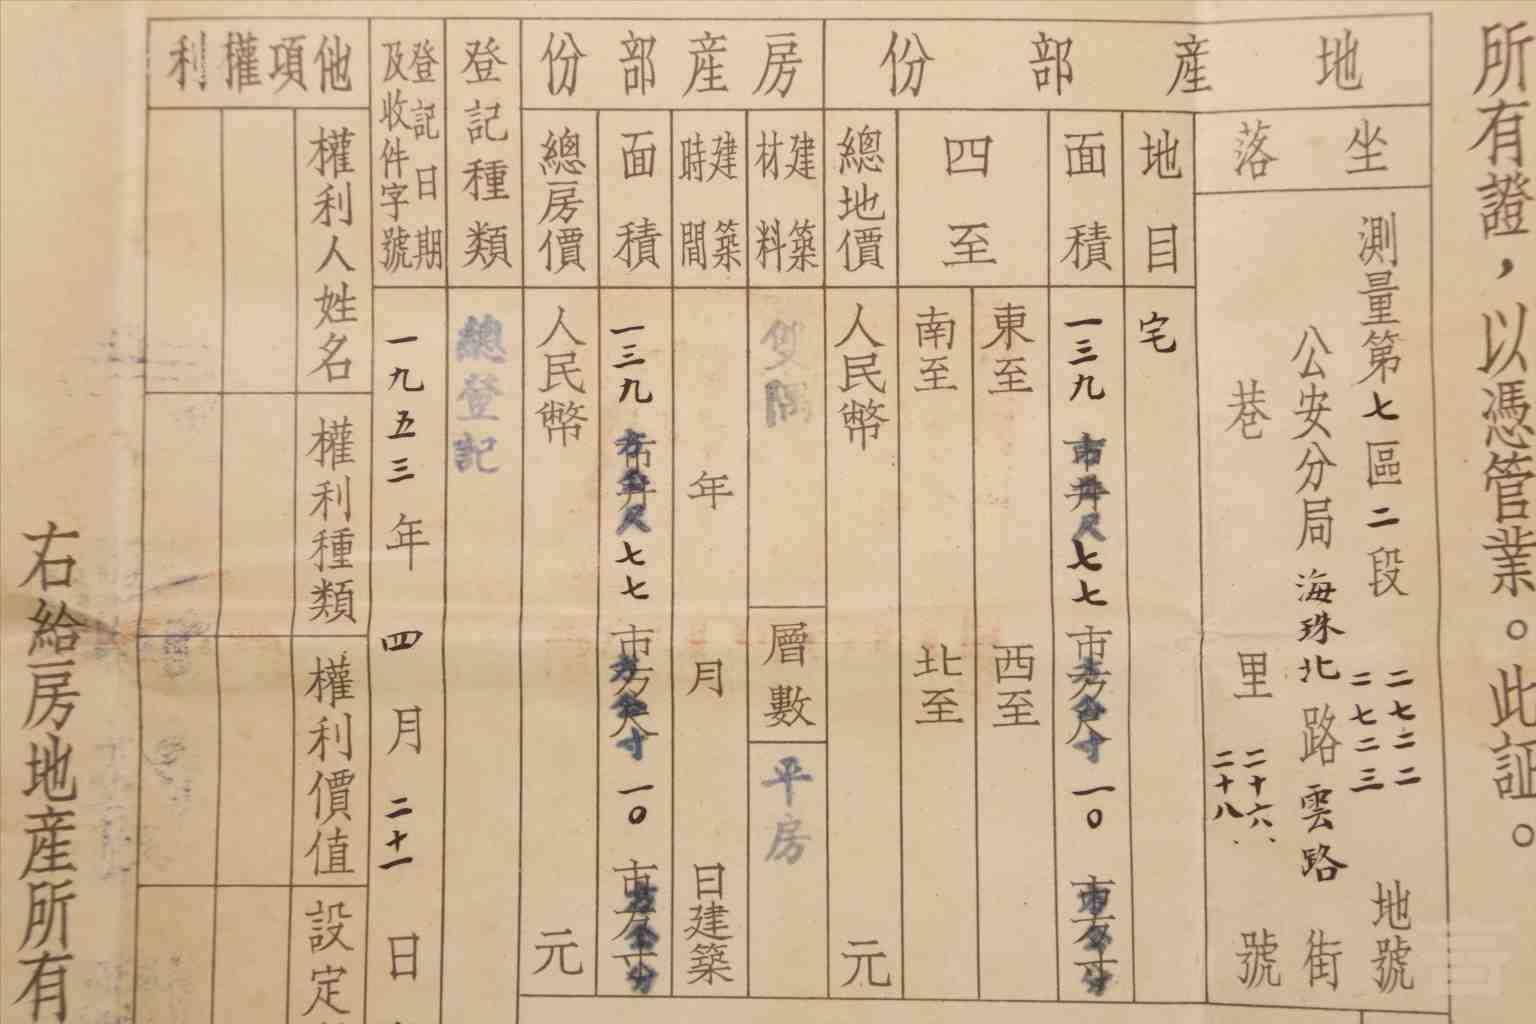 所有證，以憑管業。此証。
地產部份
坐落
測量第七區二段 二七二二 二七二三 地號
公安分局海珠北路雲路街
巷 里 二十六、二十八、號
地目
宅
面積
一三九 七七 一〇
四至
東至 西至
南至 北至
總地價
人民幣 元
房產部份
建築材料
雙隅
層數
平房
建築時間
年 月 日建築
面積
一三九 七七 一〇
總房價
人民幣 元
登記種類
總登記
登記日期及收件字號
一九五三年四月二十一日
他項權利
權利人姓名
權利種類
權利價值
設定
右給房地產所有